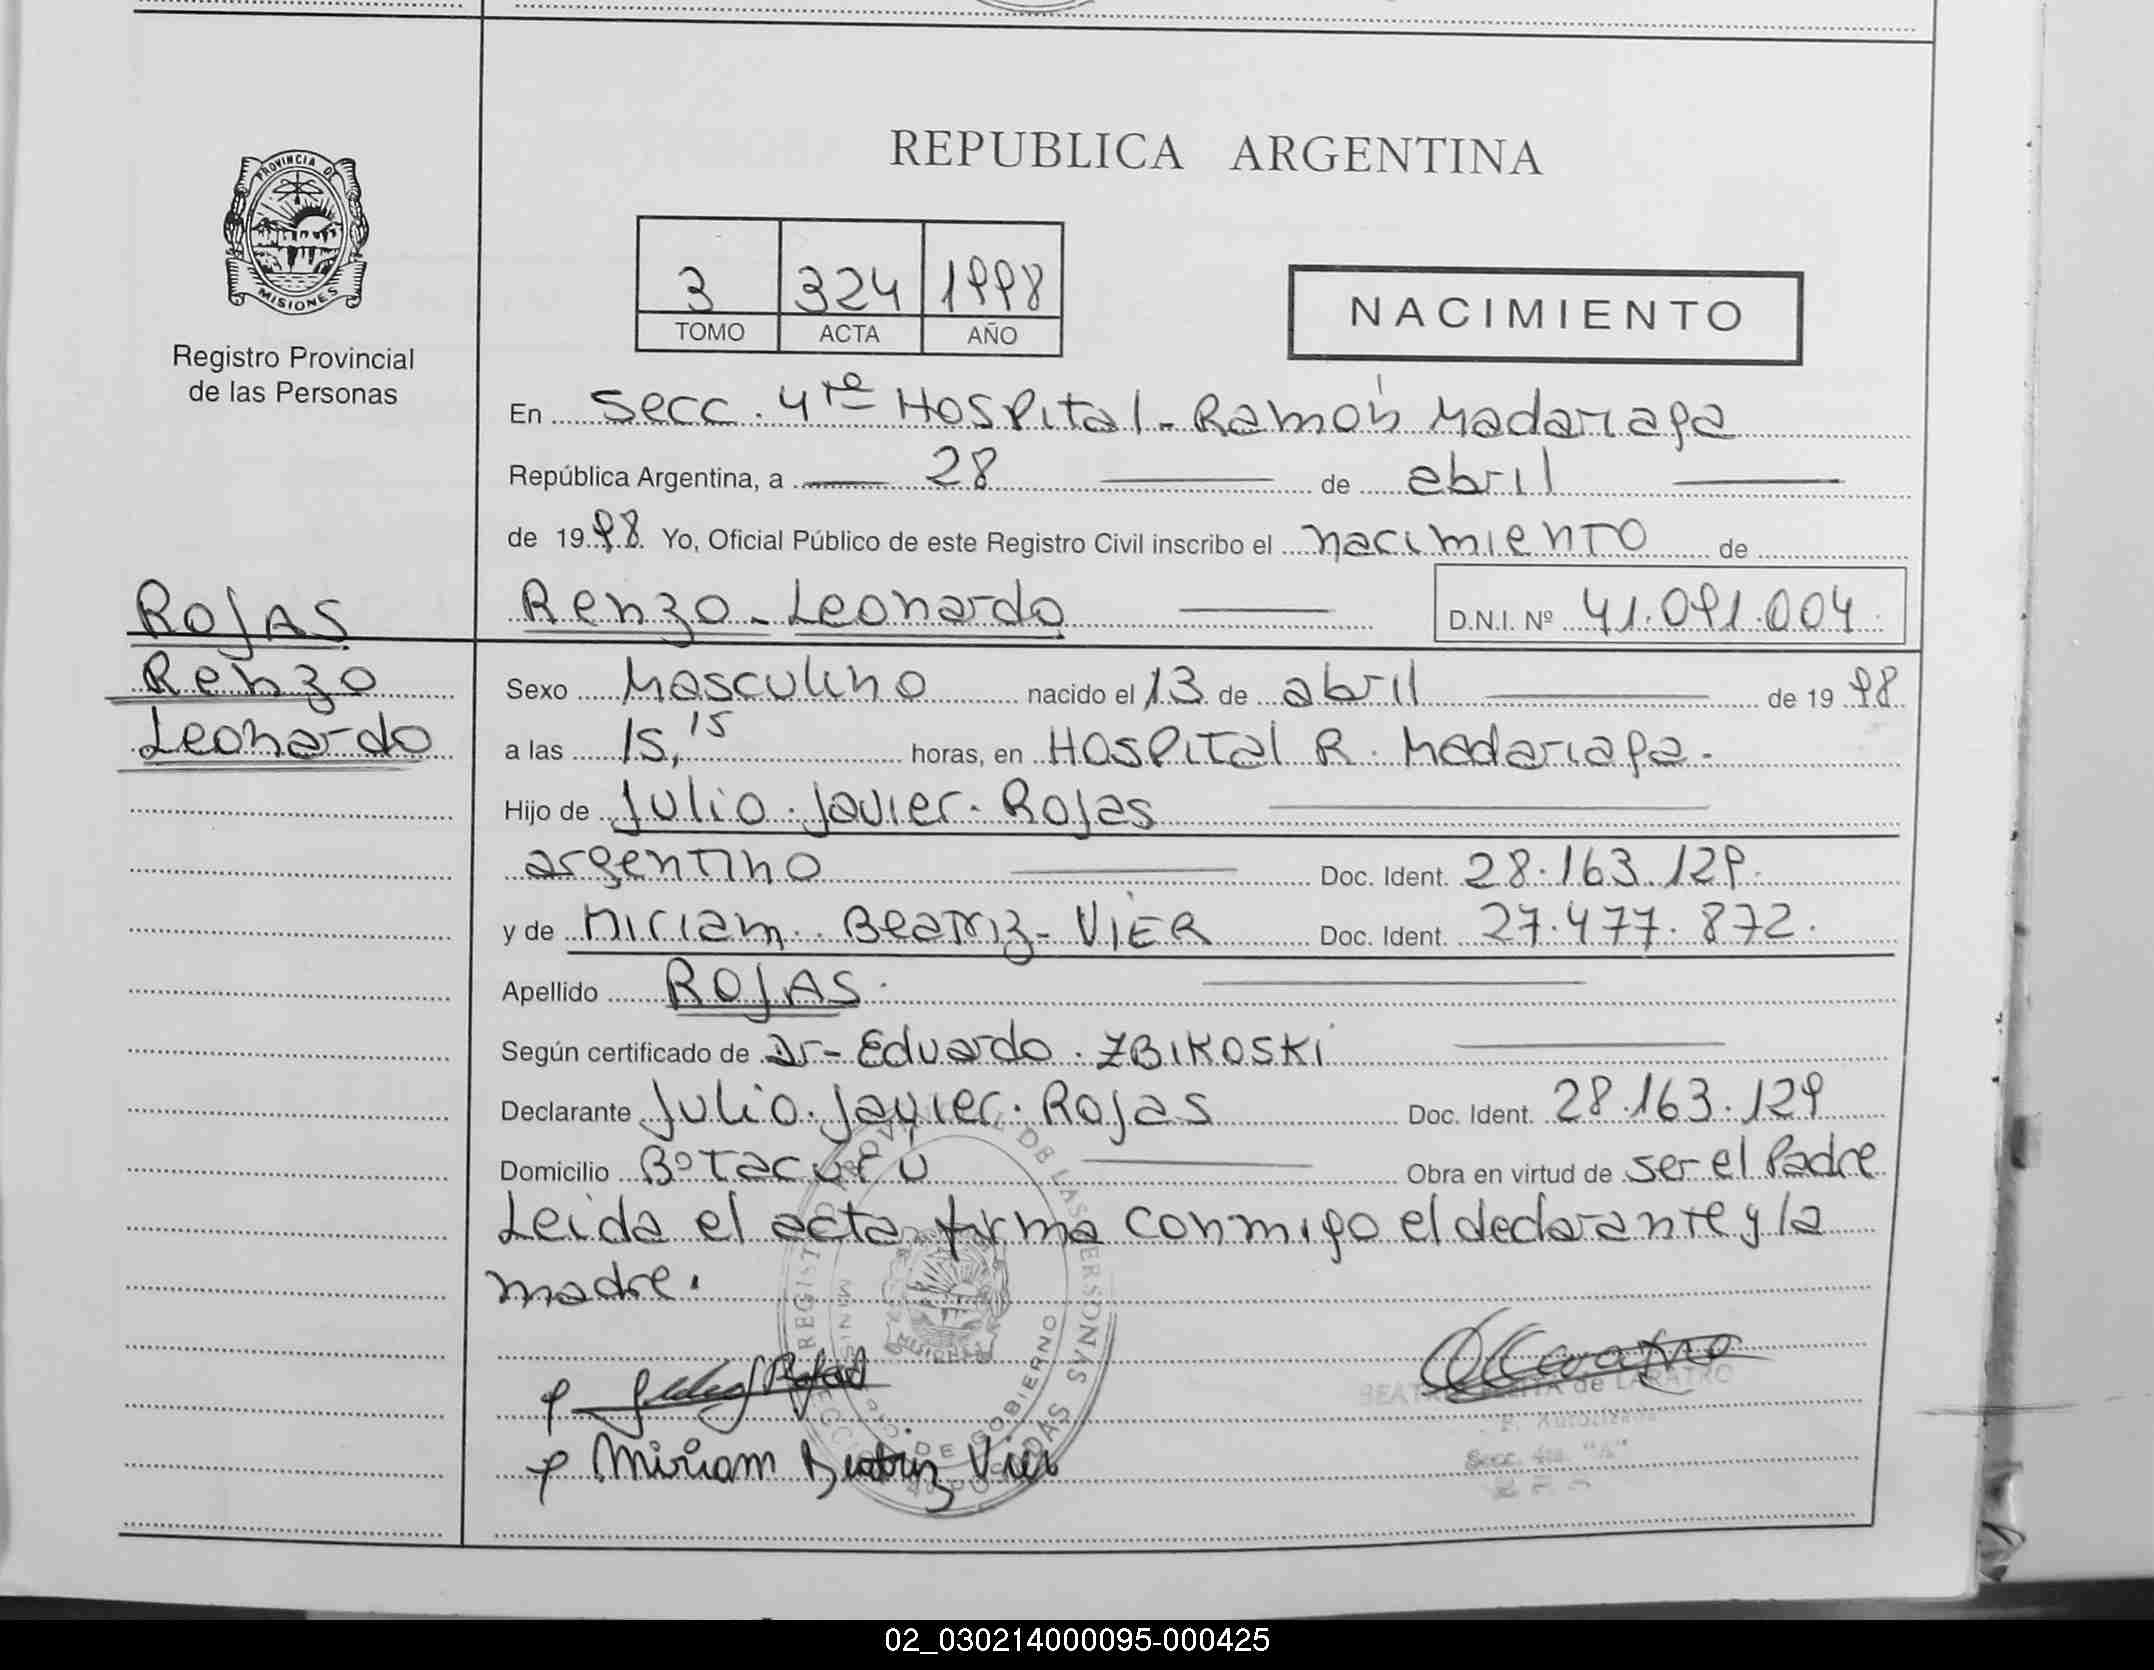 REPUBLICA ARGENTINA
PROVINCIA DE MISIONES
Registro Provincial
de las Personas
3 324 1998
TOMO ACTA AÑO
NACIMIENTO
En Secc. 4ta Hospital - Ramón Madariaga
República Argentina, a 28 de abril
de 1998 Yo, Oficial Público de este Registro Civil inscribo el nacimiento de
Renzo - Leonardo D.N.I. Nº 41.091.004.
ROJAS
Renzo
Leonardo
Sexo Masculino nacido el 13 de abril de 1998
a las 15,15 horas, en Hospital R. Madariaga.
Hijo de Julio. Javier. Rojas
argentino Doc. Ident. 28.163.129.
y de Miriam. Beatriz - VIER Doc. Ident. 27.477.872.
Apellido ROJAS.
Según certificado de Dr - Eduardo. ZBIKOSKI
Declarante Julio. Javier. Rojas Doc. Ident. 28.163.129
Domicilio Bº Tacurú Obra en virtud de ser el Padre
Leida el acta firma conmigo el declarante y la
madre.
REGISTRO PROVINCIAL DE LAS PERSONAS
MINISTERIO DE GOBIERNO
MISIONES
BEATRIZ de LARATRO
F. Autorizada
Secc. 4ta. "A"
Miriam Beatriz Vier
02_030214000095-000425